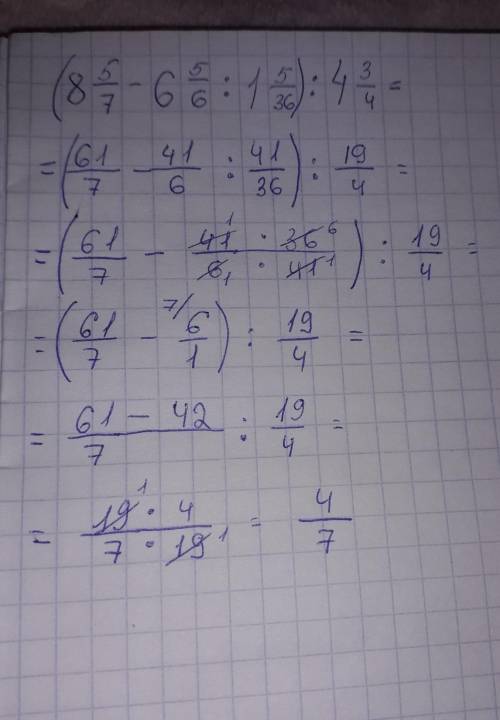 (8 5/7 - 6 5/6 : 1 5/36) : 4 3/4 =
= (61/7 - 41/6 : 41/36) : 19/4 =
= (61/7 - 41 1 · 36 6 / 6 1 · 41 1) : 19/4 =
= (61/7 - 7/ 6/1) : 19/4 =
= 61 - 42 / 7 : 19/4 =
= 19 1 · 4 / 7 · 19 1 = 4/7